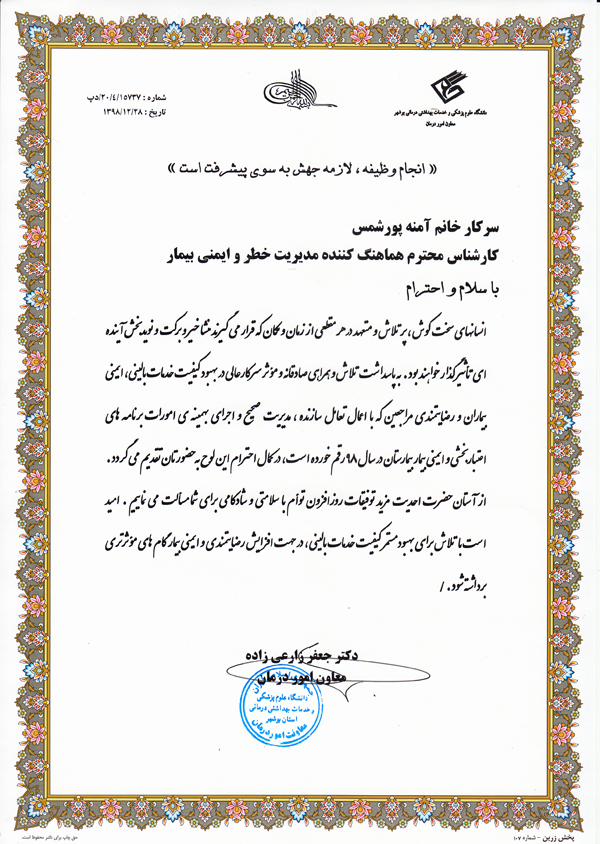 دانشگاه علوم پزشکی و خدمات بهداشتی درمانی بوشهر
معاون امور درمان
شماره : ۲۰/۴/۱۵۷۳۷/دپ
تاریخ : ۱۳۹۸/۱۲/۲۸
« انجام وظیفه ، لازمه جهش به سوی پیشرفت است »
سرکار خانم آمنه پورشمس
کارشناس محترم هماهنگ کننده مدیریت خطر و ایمنی بیمار
با سلام و احترام
انسانهای سخت کوش، پر تلاش و متعهد در هر مقطعی از زمان و مکان که قرار می گیرند منشا خیر و برکت و نوید بخش آینده
ای تأثیرگذار خواهند بود. به پاسداشت تلاش و همراهی صادقانه و مؤثر سرکارعالی در بهبود کیفیت خدمات بالینی، ایمنی
بیماران و رضایتمندی مراجعین که با اعمال تعامل سازنده ، مدیریت صحیح و اجرای بهینه ی امورات برنامه های
اعتباربخشی و ایمنی بیمار بیمارستان در سال ۹۸ رقم خورده است، در کمال احترام این لوح به حضورتان تقدیم می گردد.
از آستان حضرت احدیت مزید توفیقات روزافزون توأم با سلامتی و شادکامی برای شما مسألت می نماییم . امید
است با تلاش برای بهبود مستمر کیفیت خدمات بالینی، در جهت افزایش رضایتمندی و ایمنی بیمار گام های مؤثرتری
برداشته شود. /
دکتر جعفر زارعی زاده
معاون امور درمان
دانشگاه علوم پزشکی
و خدمات بهداشتی درمانی
استان بوشهر
معاونت امور درمان
پخش زرین - شماره ۱۰۷
حق چاپ برای ناشر محفوظ است.